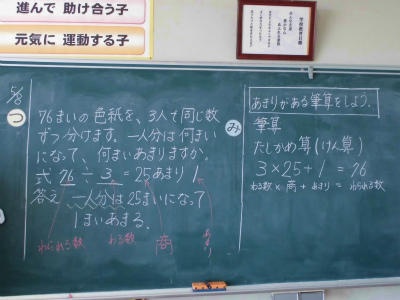 進んで 助け合う子
元気に 運動する子
学校教育目標
5/8
つ
76まいの色紙を、3人で同じ数
ずつ分けます。一人分は何まい
になって、何まいあまりますか。
式 76 ÷ 3 = 25あまり1
答え 一人分は25まいになって
1まいあまる。
わられる数 わる数 商 あまり
み
あまりがある筆算をしよう。
筆算
たしかめ算(けん算)
3×25+1=76
わる数 × 商 + あまり = わられる数